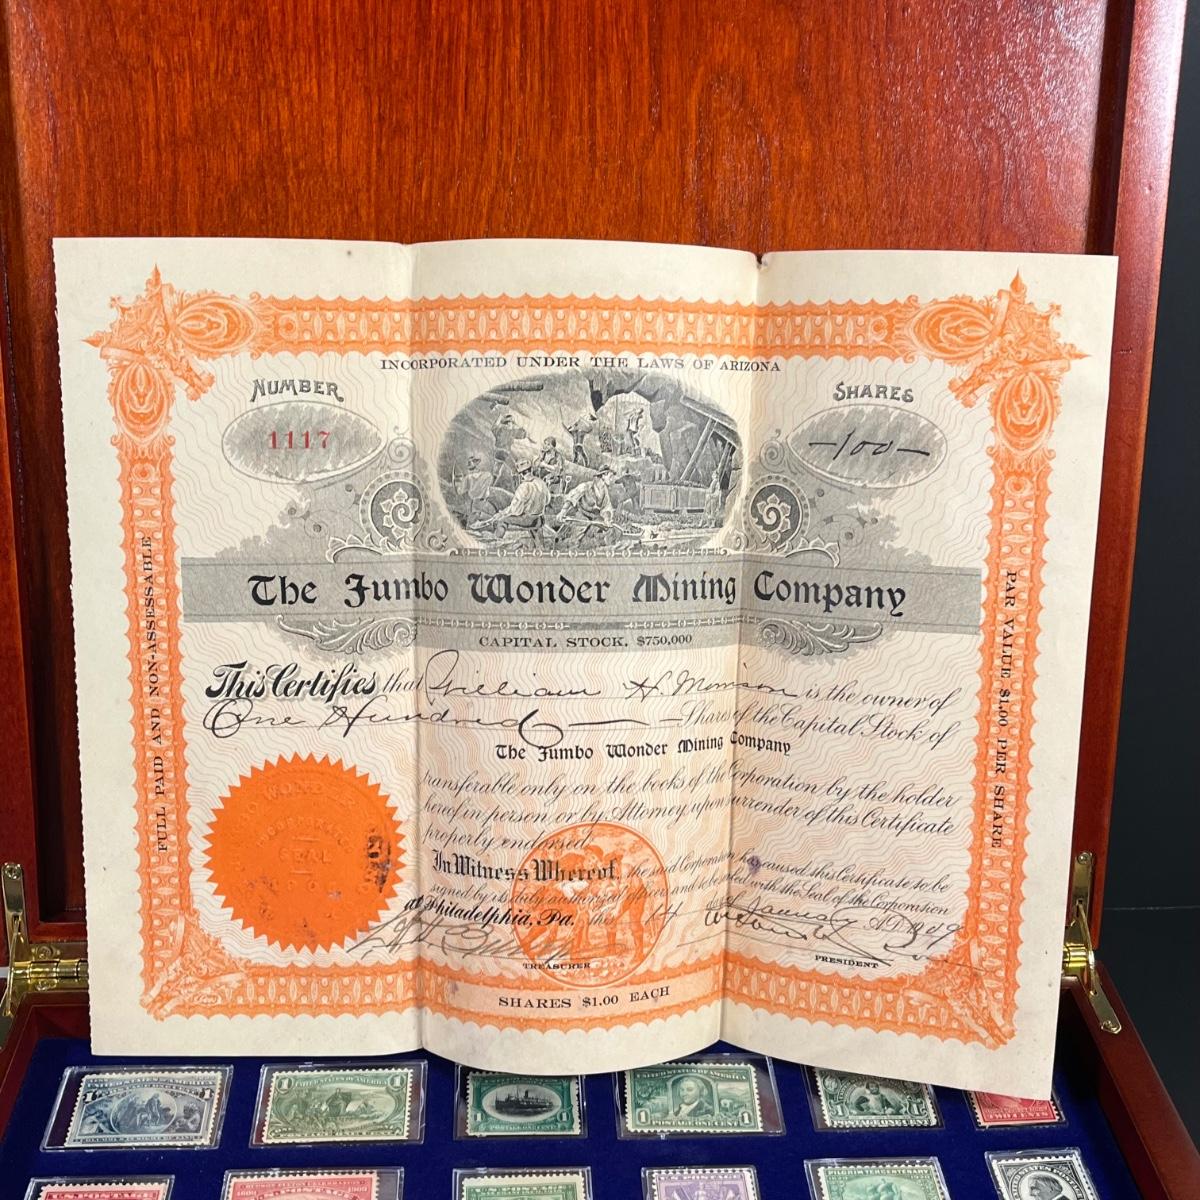 INCORPORATED UNDER THE LAWS OF ARIZONA
NUMBER
1117
SHARES
—100—
The Jumbo Wonder Mining Company
CAPITAL STOCK, $750,000
FULL PAID AND NON-ASSESSABLE
PAR VALUE $1.00 PER SHARE
This Certifies that William H. Morrison is the owner of
One Hundred — — Shares of the Capital Stock of
The Jumbo Wonder Mining Company
transferable only on the books of the Corporation by the holder
hereof in person or by Attorney upon surrender of this Certificate
properly endorsed.
In Witness Whereof, the said Corporation has caused this Certificate to be
signed by its duly authorized officers and to be sealed with the Seal of the Corporation
at Philadelphia, Pa. this 14 day of January A.D. 1909
TREASURER
PRESIDENT
SHARES $1.00 EACH
WONDER
SEAL
1
1
UNITED STATES OF AMERICA
1
1
POSTAGE ONE CENT
UNITED STATES OF AMERICA
1
1
POSTAGE ONE CENT
1
1
TWO CENTS
U.S. POSTAGE
1909
U.S. POSTAGE
PILGRIM TERCENTENARY